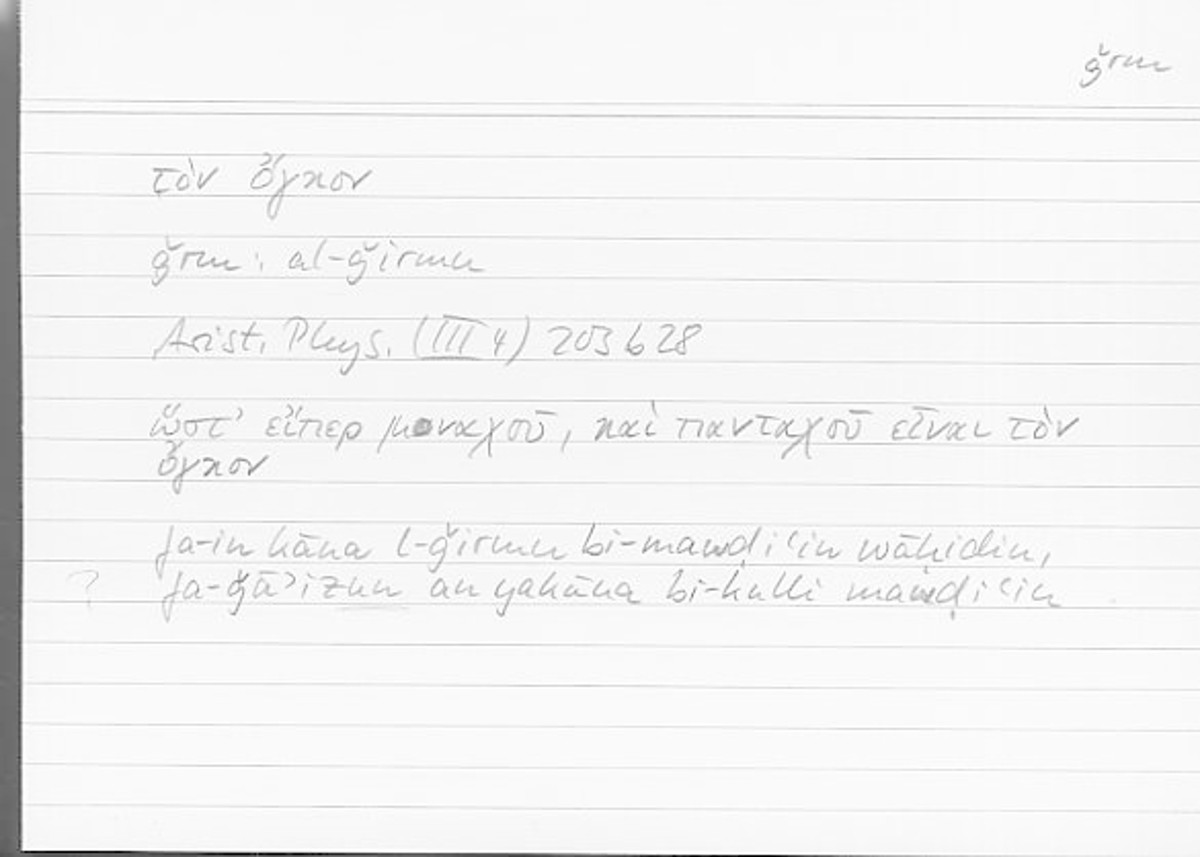 ǧrm
τὸν ὄγκον
ǧrm: al-ǧirmu
Arist. Phys. (III 4) 203 b 28
ὥστ' εἴπερ μοναχοῦ, καὶ πανταχοῦ εἶναι τὸν
ὄγκον
fa-in kāna l-ǧirmu bi-mawḍiʿin wāḥidin,
? fa-ǧāʾizun an yakūna bi-kulli mawḍiʿin